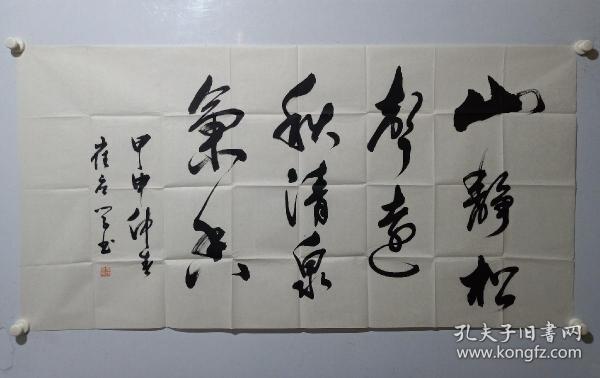 山静松
声远
秋清泉
气香
甲申仲春
崔
书
孔夫子旧书网
www.kongfz.com